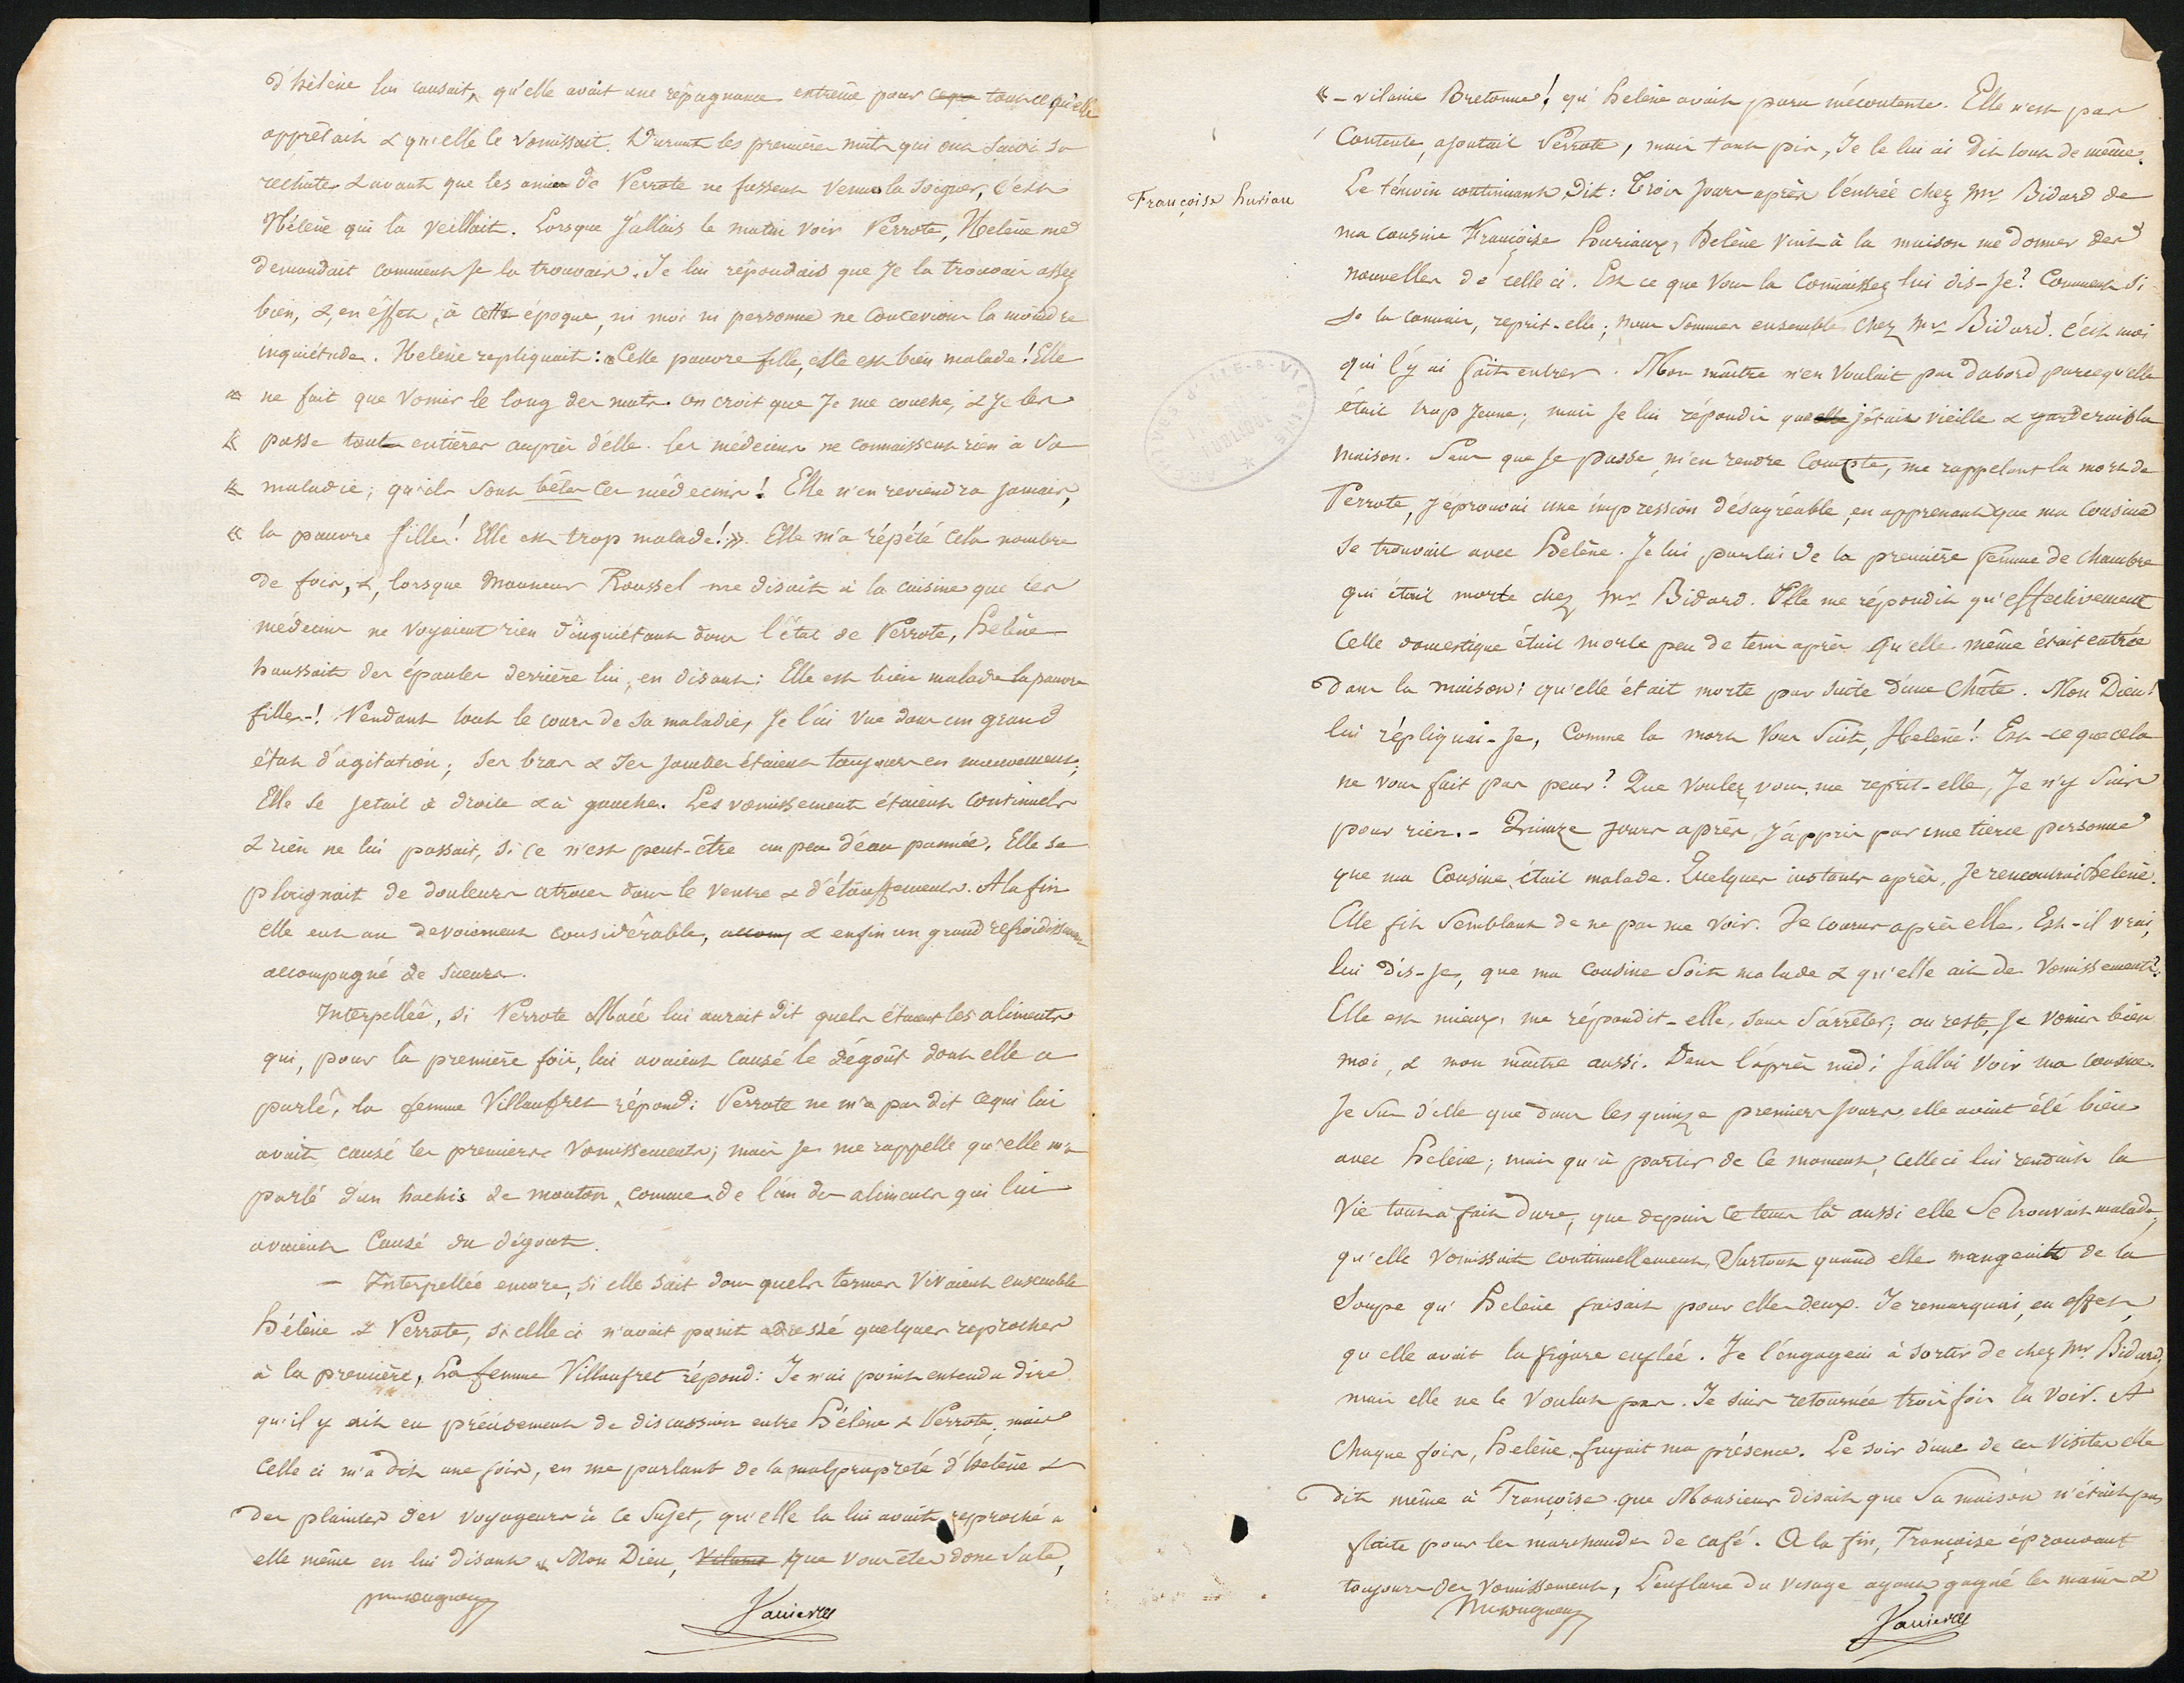 d'hélène lui causait, qu'elle avait une répugnance extrême pour ce que tout ce qu'elle
apprêtait & qu'elle le vomissait. Durant les premières nuits qui ont suivi sa
rechute & avant que les amies de Perrote ne fussent venues la soigner, c'est
Hélène qui la veillait. Lorsque j'allais le matin voir Perrote, Helène me
demandait comment je la trouvais. Je lui répondais que je la trouvais assez
bien, &, en éffet, à cette époque, ni moi ni personne ne concevions la moindre
inquiétude. Helène repliquait : « Cette pauvre fille, elle est bien malade ! Elle
« ne fait que vomir le long des nuits. on croit que je me couche, & je les
« passe toutes entières auprès d'elle. les médecins ne connaissent rien à sa
« maladie ; qu'ils sont bêtes ces médecins ! Elle n'en reviendra jamais,
« la pauvre fille ! Elle est trop malade ! ». Elle m'a répété cela nombre
de fois, &, lorsque Monsieur Roussel me disait à la cuisine que les
médecins ne voyaient rien d'inquiétant dans l'état de Perrote, helène
haussait des épaules derrière lui, en disant : Elle est bien malade la pauvre
fille - ! Pendant tout le cours de sa maladie, je l'ai vue dans un grand
état d'agitation ; ses bras & ses jambes étaient toujours en mouvement ;
Elle se jetait à droite & à gauche. Les vomissements étaient continuels
& rien ne lui passait, si ce n'est peut-être un peu d'eau pannée. Elle se
plaignait de douleurs atroces dans le ventre & d'étouffements. A la fin
elle eut un devoiement considérable, accom & enfin un grand refroidissement
accompagné de sueurs.
Interpellée, si Perrote Macé lui aurait dit quels étaient les aliments
qui, pour la première fois, lui avaient causé le dégoût dont elle a
parlé, la femme Villaufret répond : Perrote ne m'a pas dit ce qui lui
avait causé les premiers vomissements ; mais je me rappelle qu'elle m'a
parlé d'un hachis de mouton, comme de l'un des aliments qui lui
avaient causé du dégout.
— Interpellée encore, si elle sait dans quels termes vivaient ensemble
hélène & Perrote, si celle ci n'avait point adressé quelques reproches
à la première, La femme Villaufret répond : Je n'ai point entendu dire
qu'il y ait eu précisement de discussion entre hélène & Perrote, mais
celle ci m'a dit une fois, en me parlant de la malpropreté d'helène &
des plaintes des voyageurs à ce sujet, qu'elle la lui avait reproché à
elle même en lui disant « Mon Dieu, Vilaine que vous êtes donc sale,
Françoise huriau
« - vilaine Bretonne ! qu'helène avait paru mécontente. Elle n'est pas
contente, ajoutait Perrote, mais tant pis, Je le lui ai dit tout de même.
Le témoin continuant, Dit : Trois jours après l'entrée chez Mr Bidard de
ma cousine Françoise Louriaux, helène vint à la maison me donner des
nouvelles de celle ci. Est ce que vous la connaissez lui dis-je ? Comment si
je la connais, reprit-elle ; nous sommes ensemble chez Mr Bidard. C'est moi
qui l'y ai fait entrer. Mon maître n'en voulait pas d'abord parcequ'elle
était trop jeune ; mais je lui répondis que elle j'étais vieille & garderais la
maison. Sans que je puisse m'en rendre compte, me rappelant la mort de
Perrote, j'éprouvai une impression désagréable, en apprenant que ma cousine
se trouvait avec helène. Je lui parlai de la première femme de chambre
qui était morte chez Mr Bidard. Elle me répondit qu'effectivement
cette domestique était morte peu de tems après qu'elle même était entrée
dans la maison ; qu'elle était morte par suite d'une chûte. Mon Dieu !
lui répliquai-je, comme la mort vous suit, Helène ! Est-ce que cela
ne vous fait pas peur ? Que voulez vous, me reprit-elle, Je n'y suis
pour rien. - Quinze jours après, j'appris par une tierce personne
que ma cousine était malade. Quelques instants après, je rencontrai helène.
Elle fit semblant de ne pas me voir. Je courus après elle. Est-il vrai,
lui dis-je, que ma cousine soit malade & qu'elle ait des vomissements ?
Elle est mieux, me répondit-elle, sans s'arrêter ; au reste, je vomis bien
moi, & mon maître aussi. Dans l'après midi j'allai voir ma cousine.
Je sus d'elle que dans les quinze premiers jours, elle avait été bien
avec helène ; mais qu'à partir de ce moment, celle ci lui rendait la
vie tout à fait dure, que depuis ce tems là aussi elle se trouvait malade,
qu'elle vomissait continuellement, surtout quand elle mangeait de la
soupe qu'helène faisait pour elles deux. Je remarquai, en effet,
qu'elle avait la figure enflée. Je l'engageai à sortir de chez Mr Bidard,
mais elle ne le voulut pas. Je suis retournée trois fois la voir. A
chaque fois, helène fuyait ma présence. Le soir d'une de ces visites elle
dit même à Françoise que Monsieur disait que sa maison n'était pas
faite pour les marchandes de café. A la fin, Françoise éprouvant
toujours des vomissements, l'enflure du visage ayant gagné les mains &